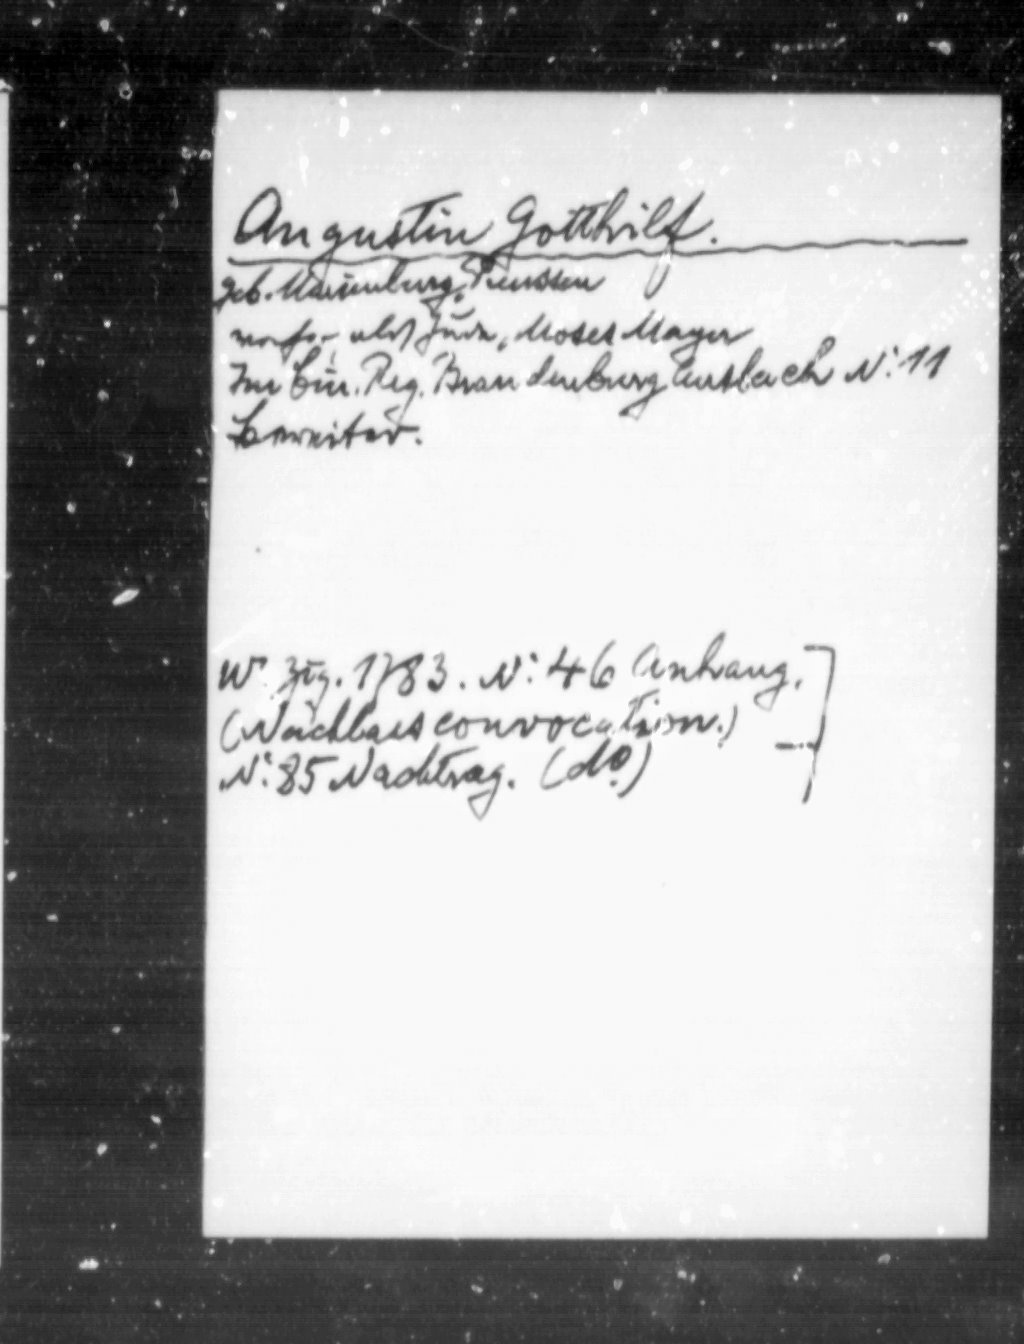 Augustin Gotthilf.
geb. Marienburg, Preussen
vorher als Jude, Moses Mayer
Im Cür. Reg. Brandenburg Ansbach N: 11
Bereiter.
Wr Ztg. 1783. N: 46 Anhang.
(Nachlassconvocation.)
N: 85 Nachtrag. (do)